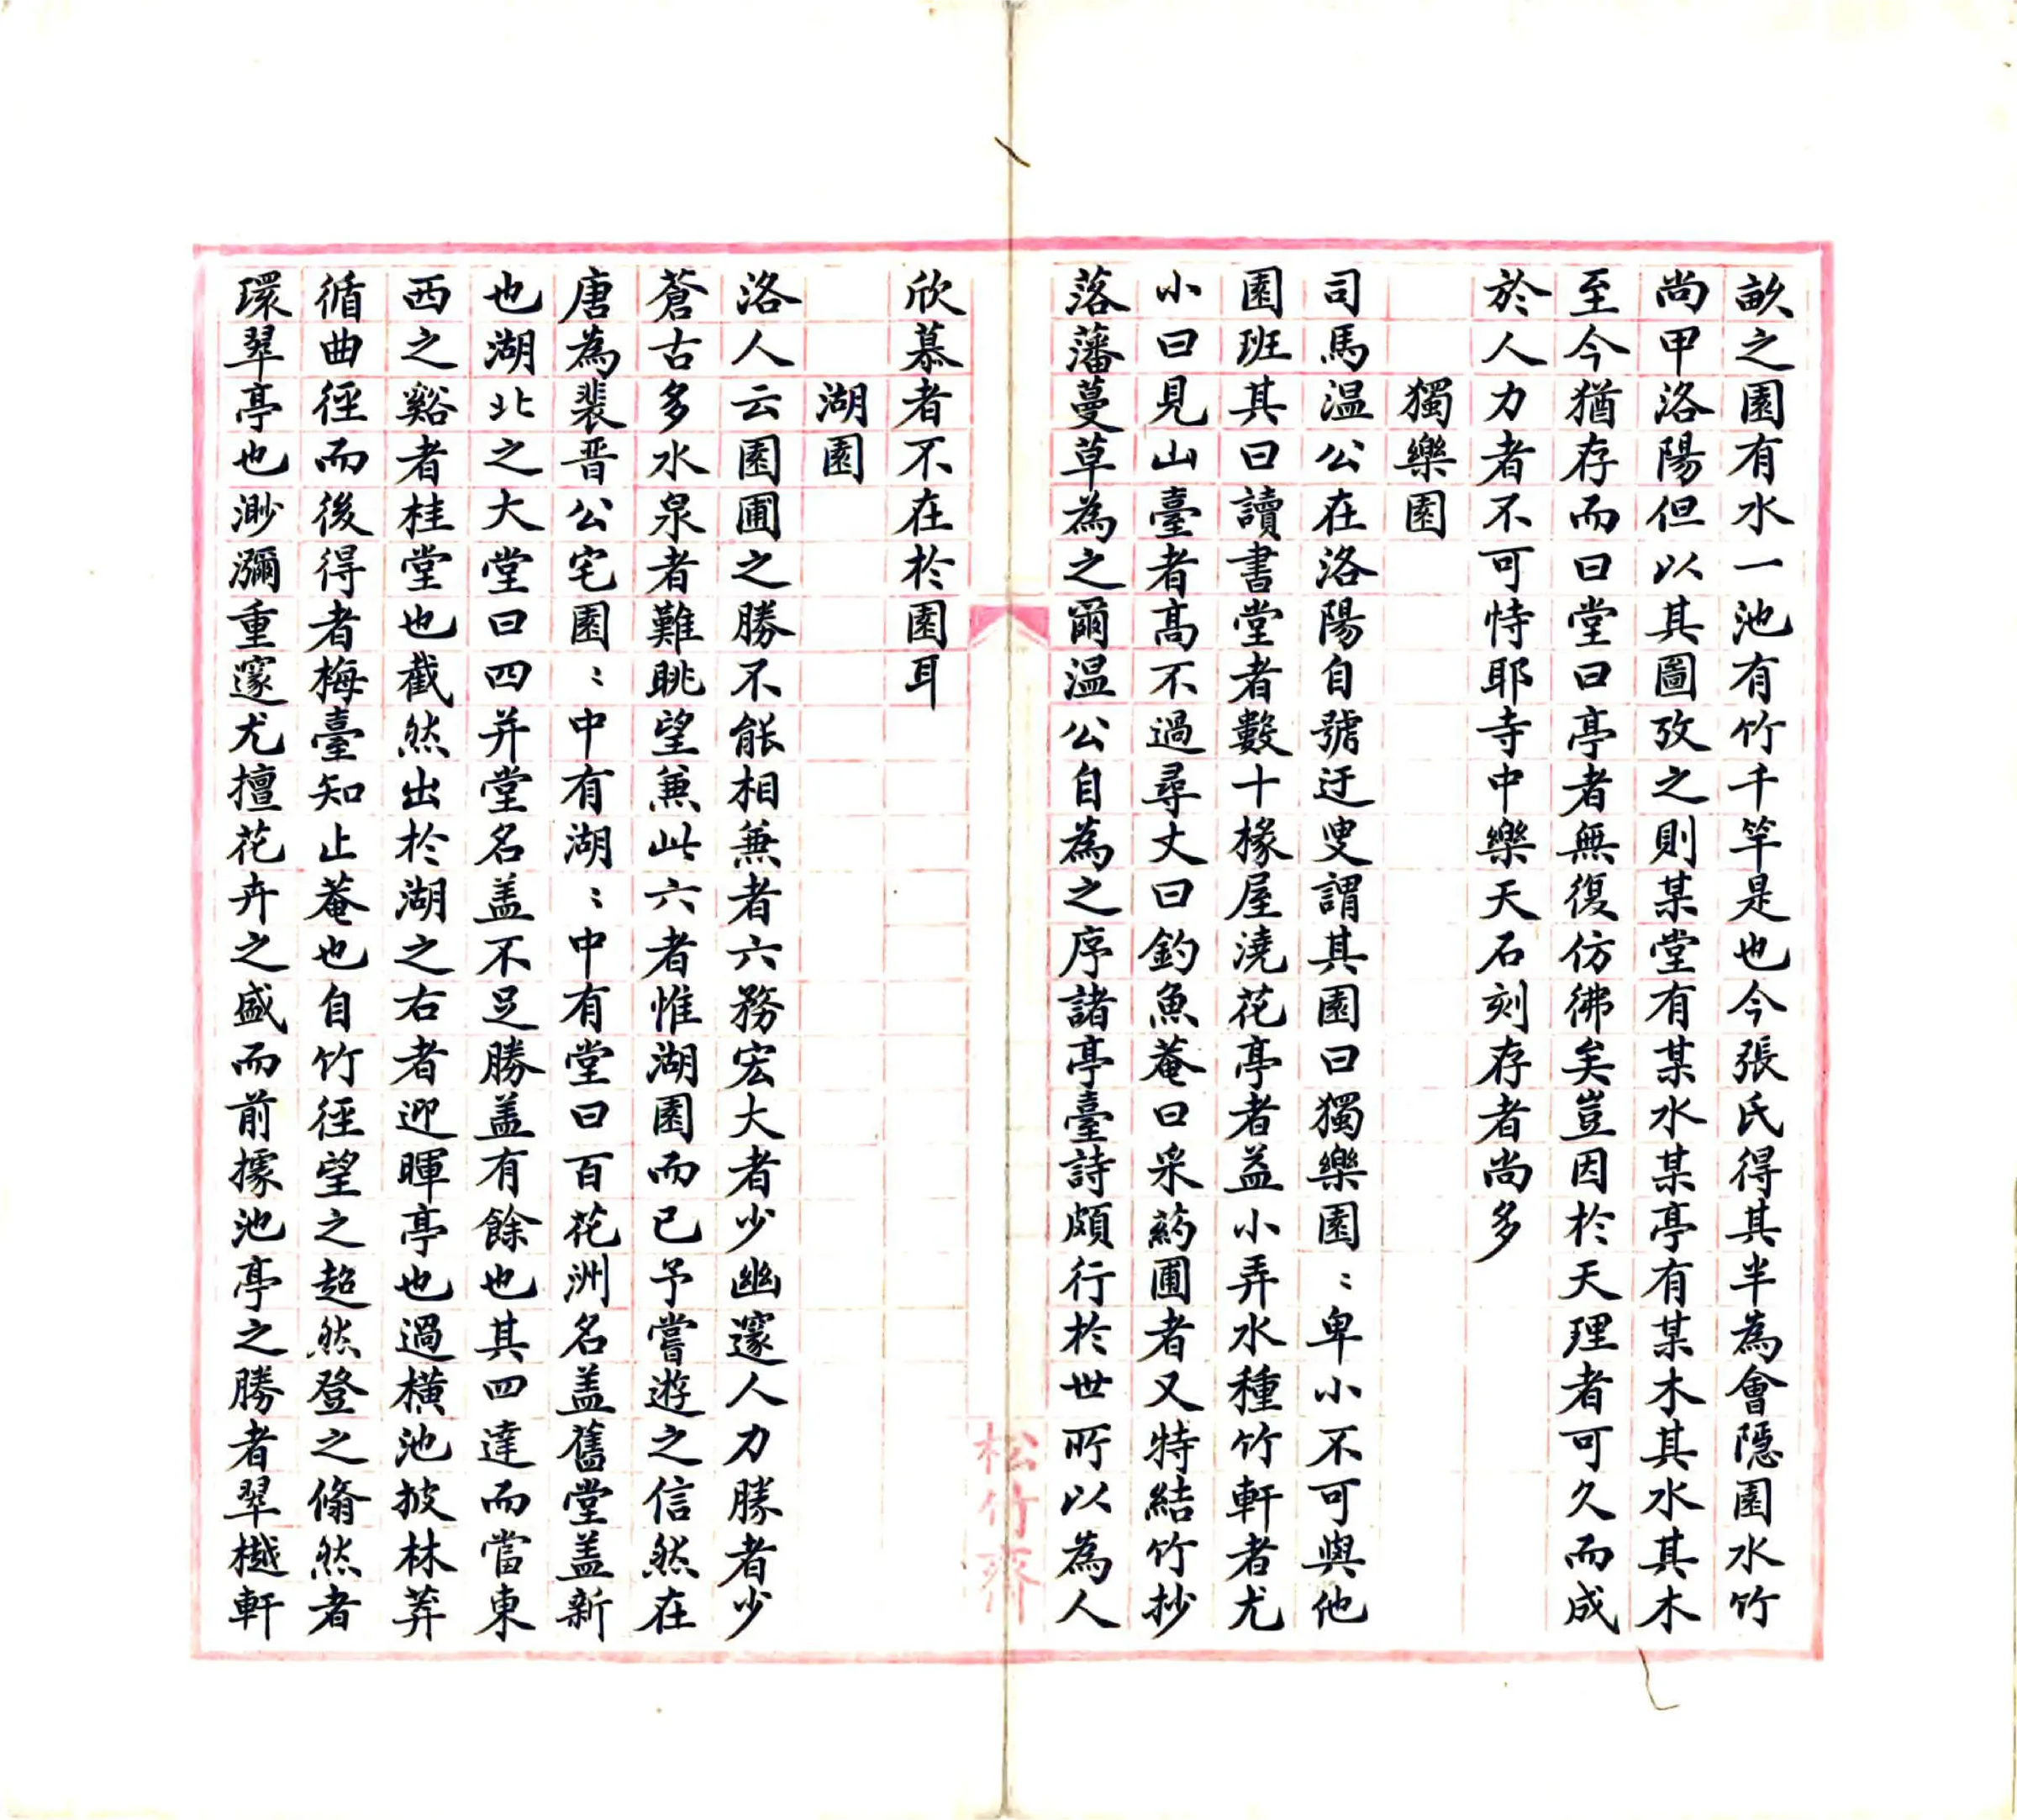 畝之園有水一池有竹千竿是也今張氏得其半為會隱園水竹
尚甲洛陽但以其圖攷之則某堂有某水某亭有某木其水其木
至今猶存而曰堂曰亭者無復仿彿矣豈因於天理者可久而成
於人力者不可恃耶寺中樂天石刻存者尚多
獨樂園
司馬温公在洛陽自號迂叟謂其園曰獨樂園〻卑小不可與他
園班其曰讀書堂者數十椽屋澆花亭者益小弄水種竹軒者尤
小曰見山臺者高不過尋丈曰釣魚菴曰采葯圃者又特結竹抄
落藩蔓草為之爾温公自為之序諸亭臺詩頗行於世所以為人
欣慕者不在於園耳
湖園
洛人云園圃之勝不能相兼者六務宏大者少幽邃人力勝者少
蒼古多水泉者難眺望兼此六者惟湖園而已予嘗遊之信然在
唐為裴晋公宅園〻中有湖〻中有堂曰百花洲名盖舊堂盖新
也湖北之大堂曰四并堂名盖不足勝盖有餘也其四達而當東
西之谿者桂堂也截然出於湖之右者迎暉亭也過橫池披林莽
循曲徑而後得者梅臺知止菴也自竹徑望之超然登之翛然者
環翠亭也渺瀰重邃尤擅花卉之盛而前據池亭之勝者翠樾軒
松竹齋